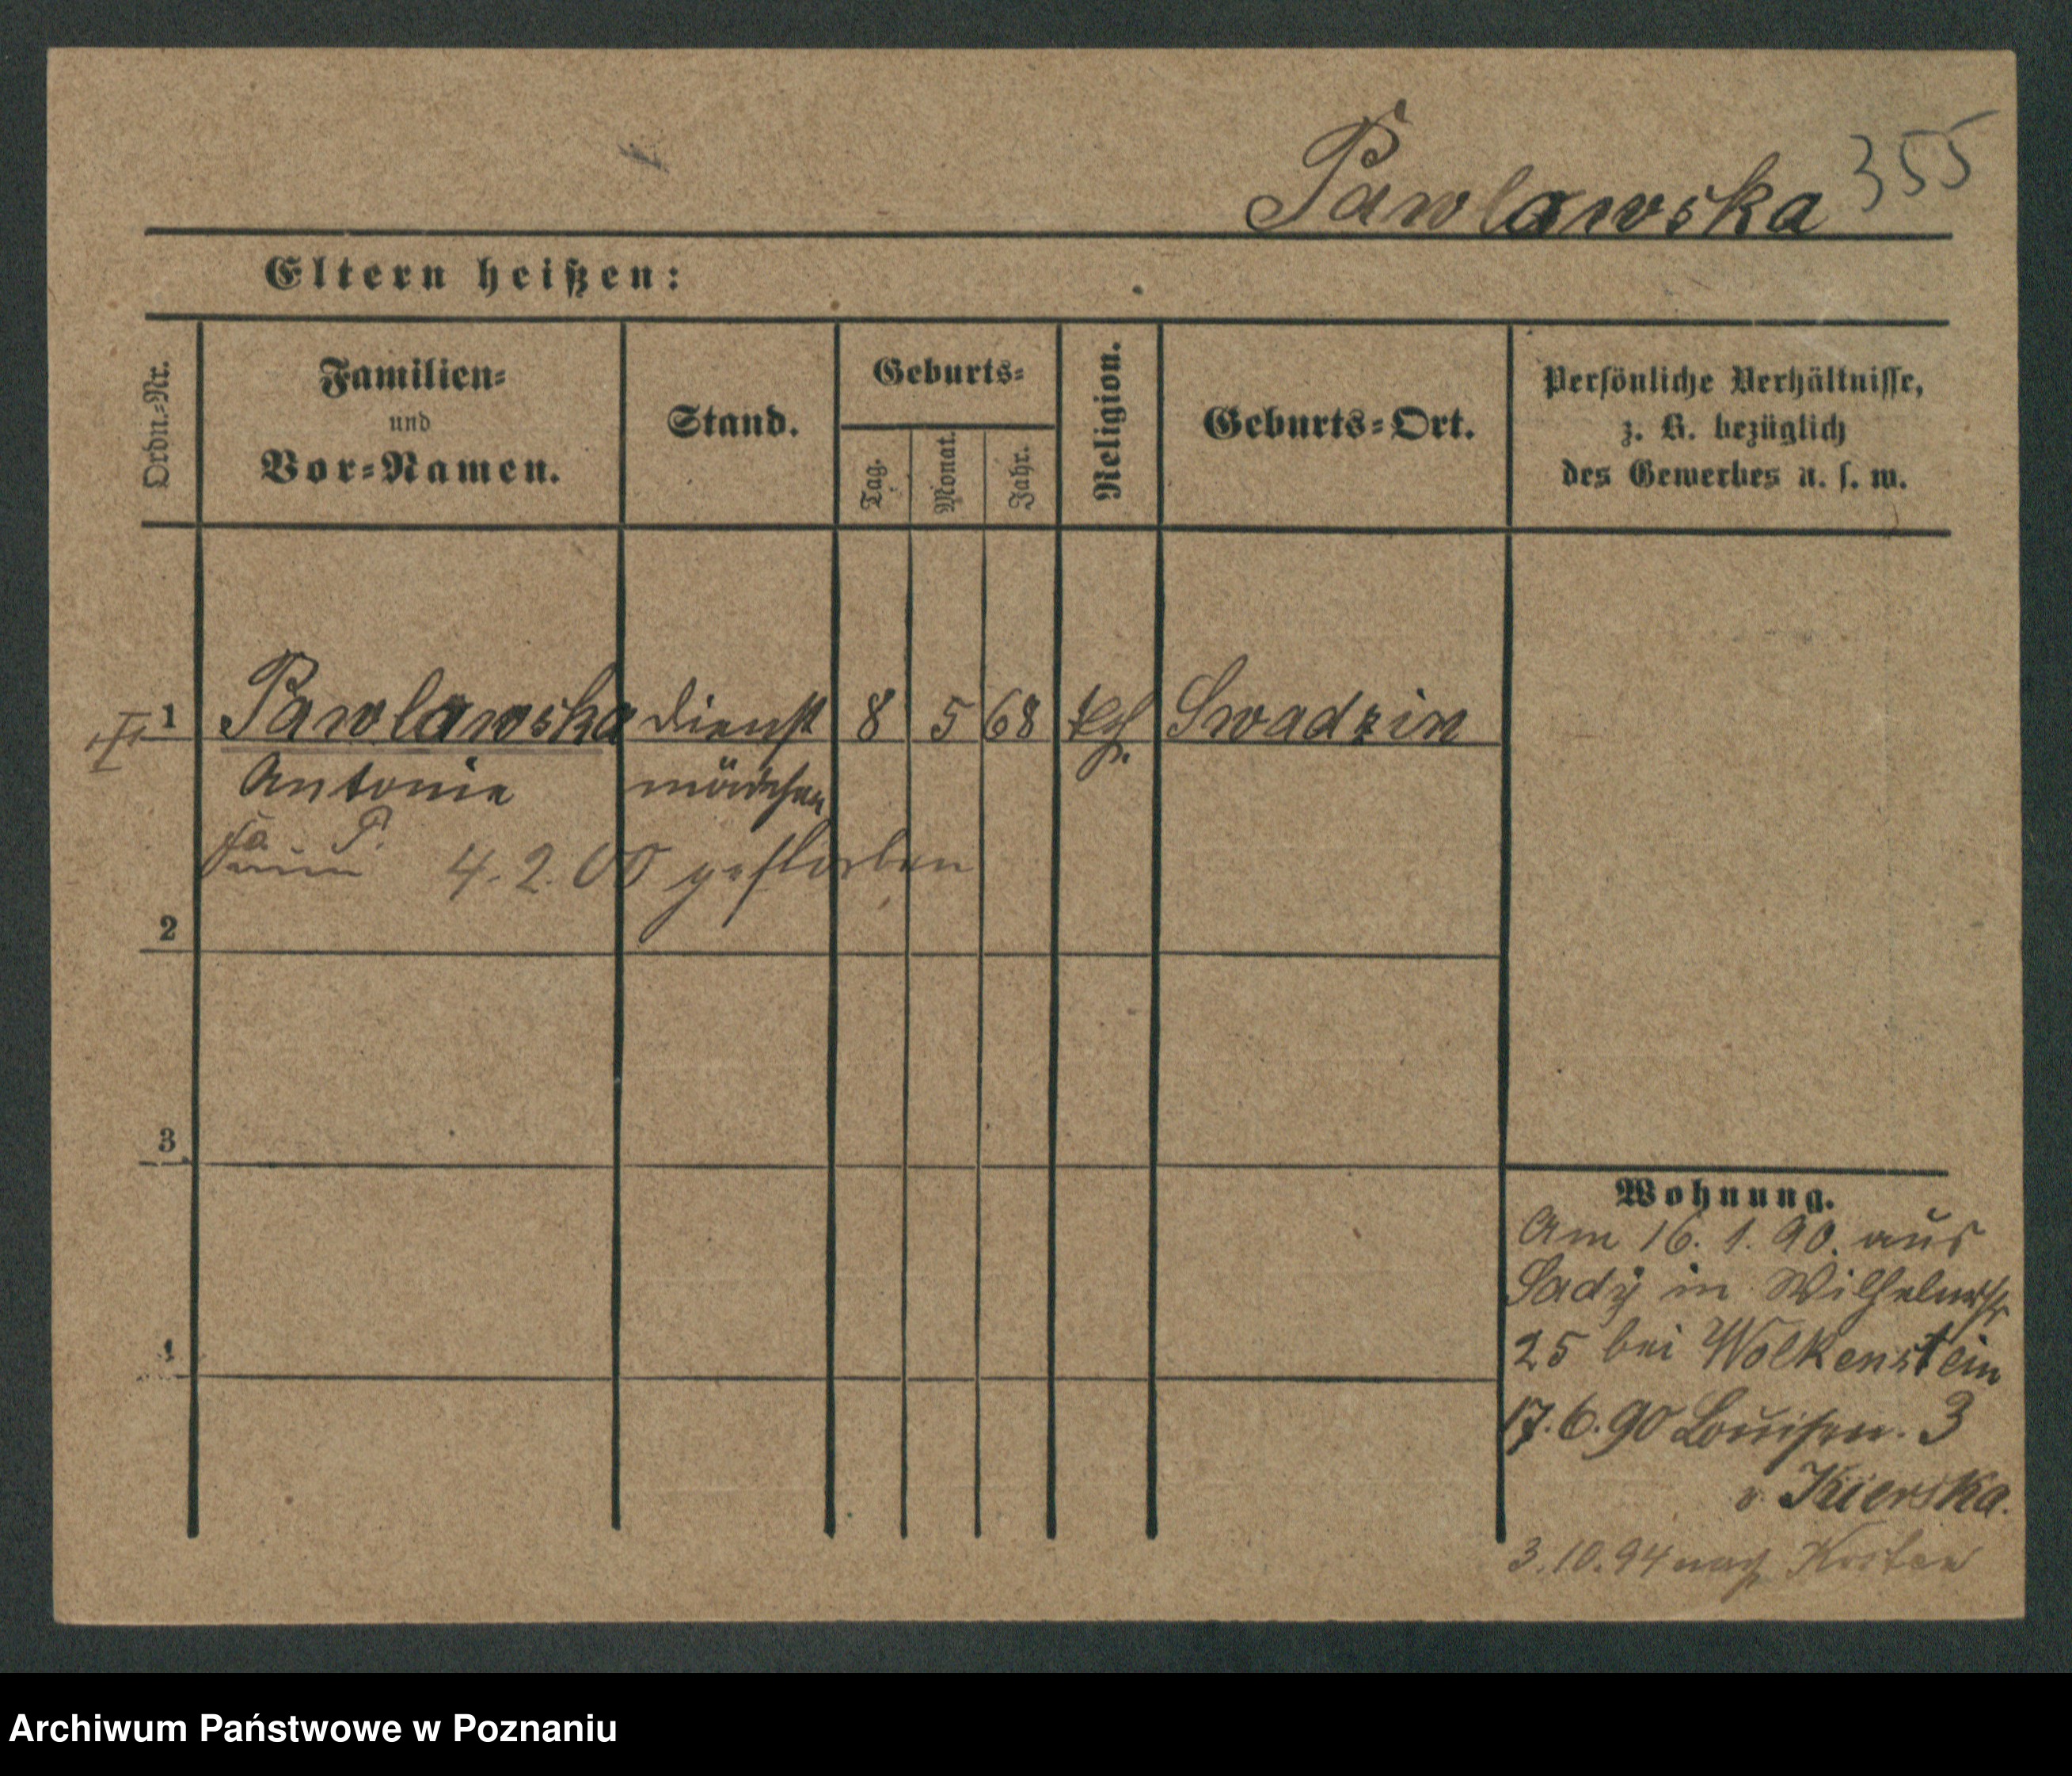 Pawlawska 355
Eltern heißen:
Ordn.=Nr.
Familien=
und
Vor=Namen.
Stand.
Geburts=
Tag.
Monat.
Jahr.
Religion.
Geburts=Ort.
Persönliche Verhältnisse,
z. B. bezüglich
des Gewerbes u. s. w.
1 Pawlawska Dienst 8 5 68 kh. Swadzin
Antonie mädchen
P. 4.2.00 gestorben
2
3
4
Wohnung.
Am 16. 1. 90. aus
Sady in Wilhelmstr
25 bei Wolkenstein
17.6.90 Louisen. 3
v. Kierska.
3.10.94 nach Kosten
Archiwum Państwowe w Poznaniu